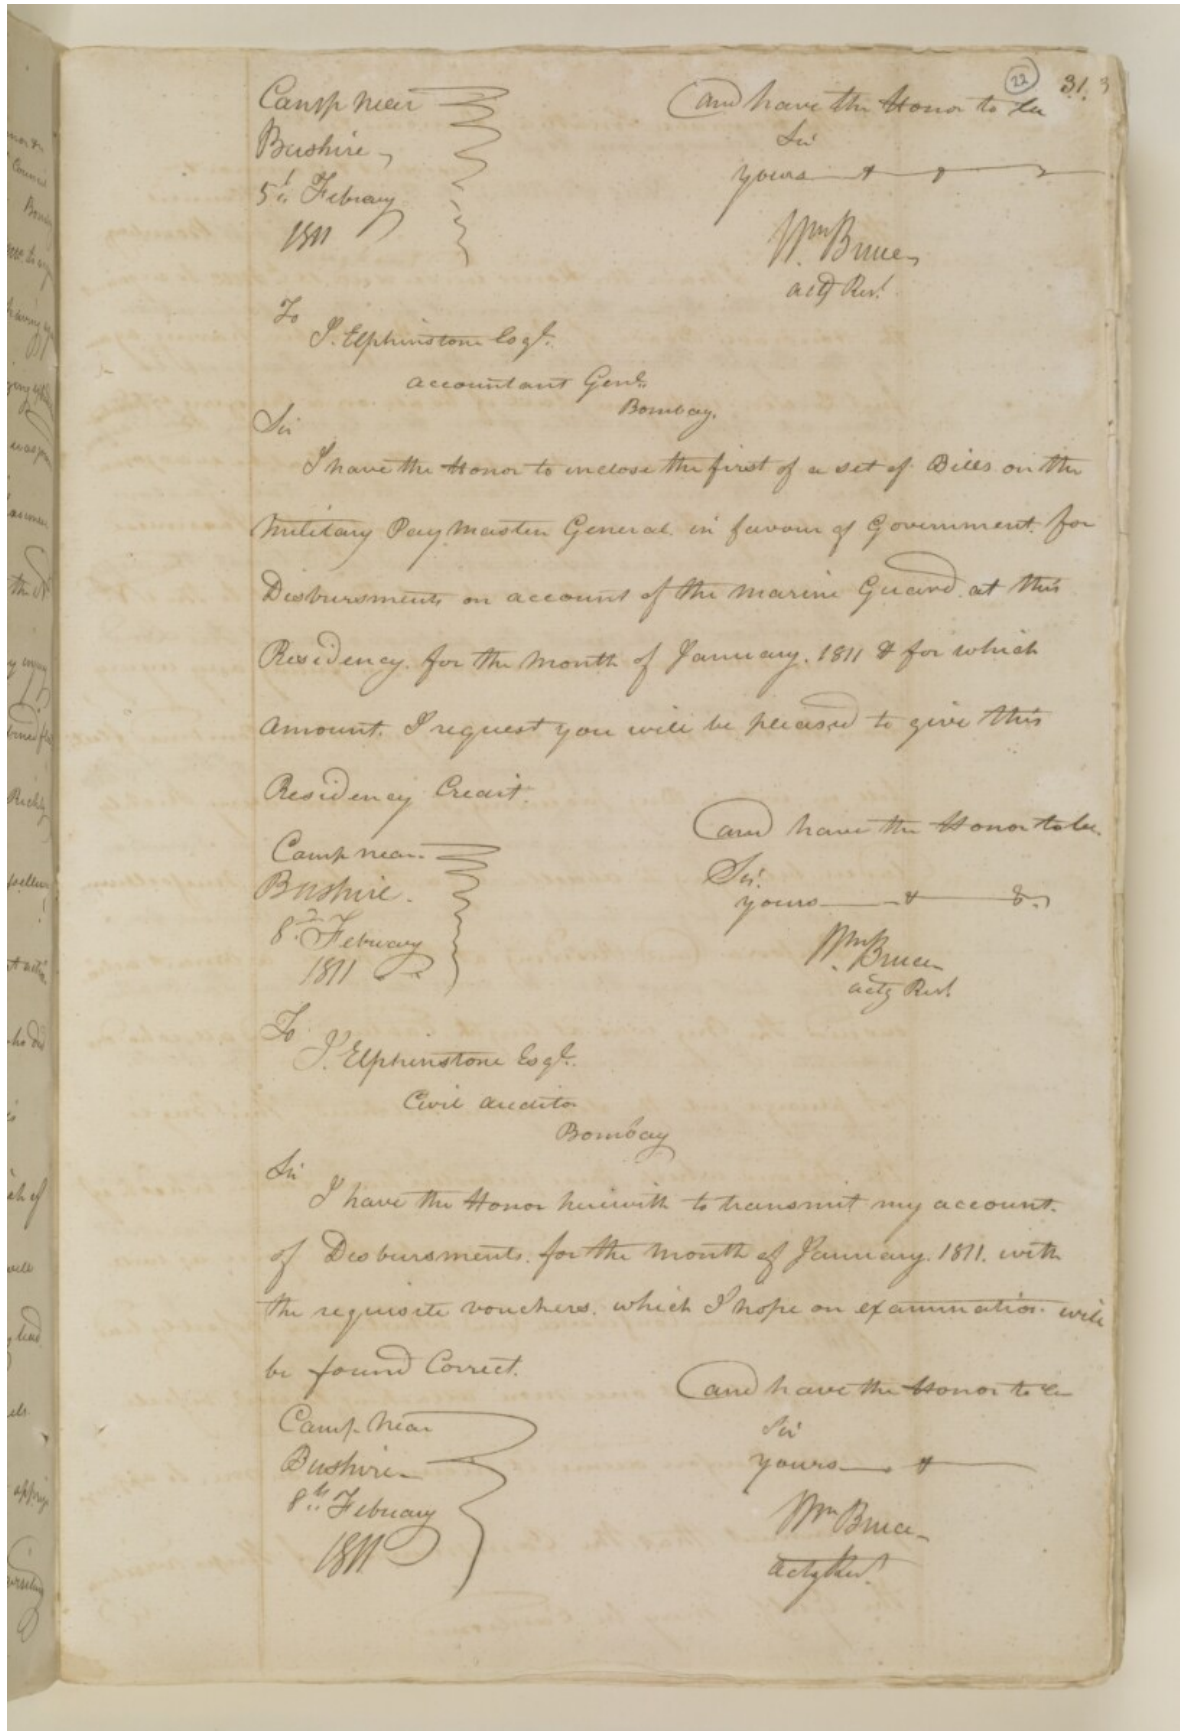 22
31
Camp near
Bushire
5th Febrary
1811
and have the Honor to be
Sir
yours &
Wm Bruce
actg Rest.
To
J. Elphinstone Esqr.
accountant Genl.
Bombay.
Sir
I have the Honor to inclose the first of a set of Bills on the
Military Pay Master General in favour of Government for
Disbursments on account of the Marine Guard at this
Residency for the Month of January. 1811 & for which
Amount. I request you will be pleased to give this
Residency Credit.
and have the Honor to be.
Sir.
yours & &.
Wm Bruce
actg Rest.
Camp near
Bushire.
8th February
1811
To
J. Elphinstone Esqr.
Civil Auditor
Bombay
Sir
I have the Honor herewith to transmit my account.
of Disbursments. for the Month of January. 1811. with
the requisite vouchers. which I hope on examination will
be found Correct.
and have the Honor to be
Sir
yours &
Wm Bruce
actg Rest.
Camp Near
Bushire
8th February
1811